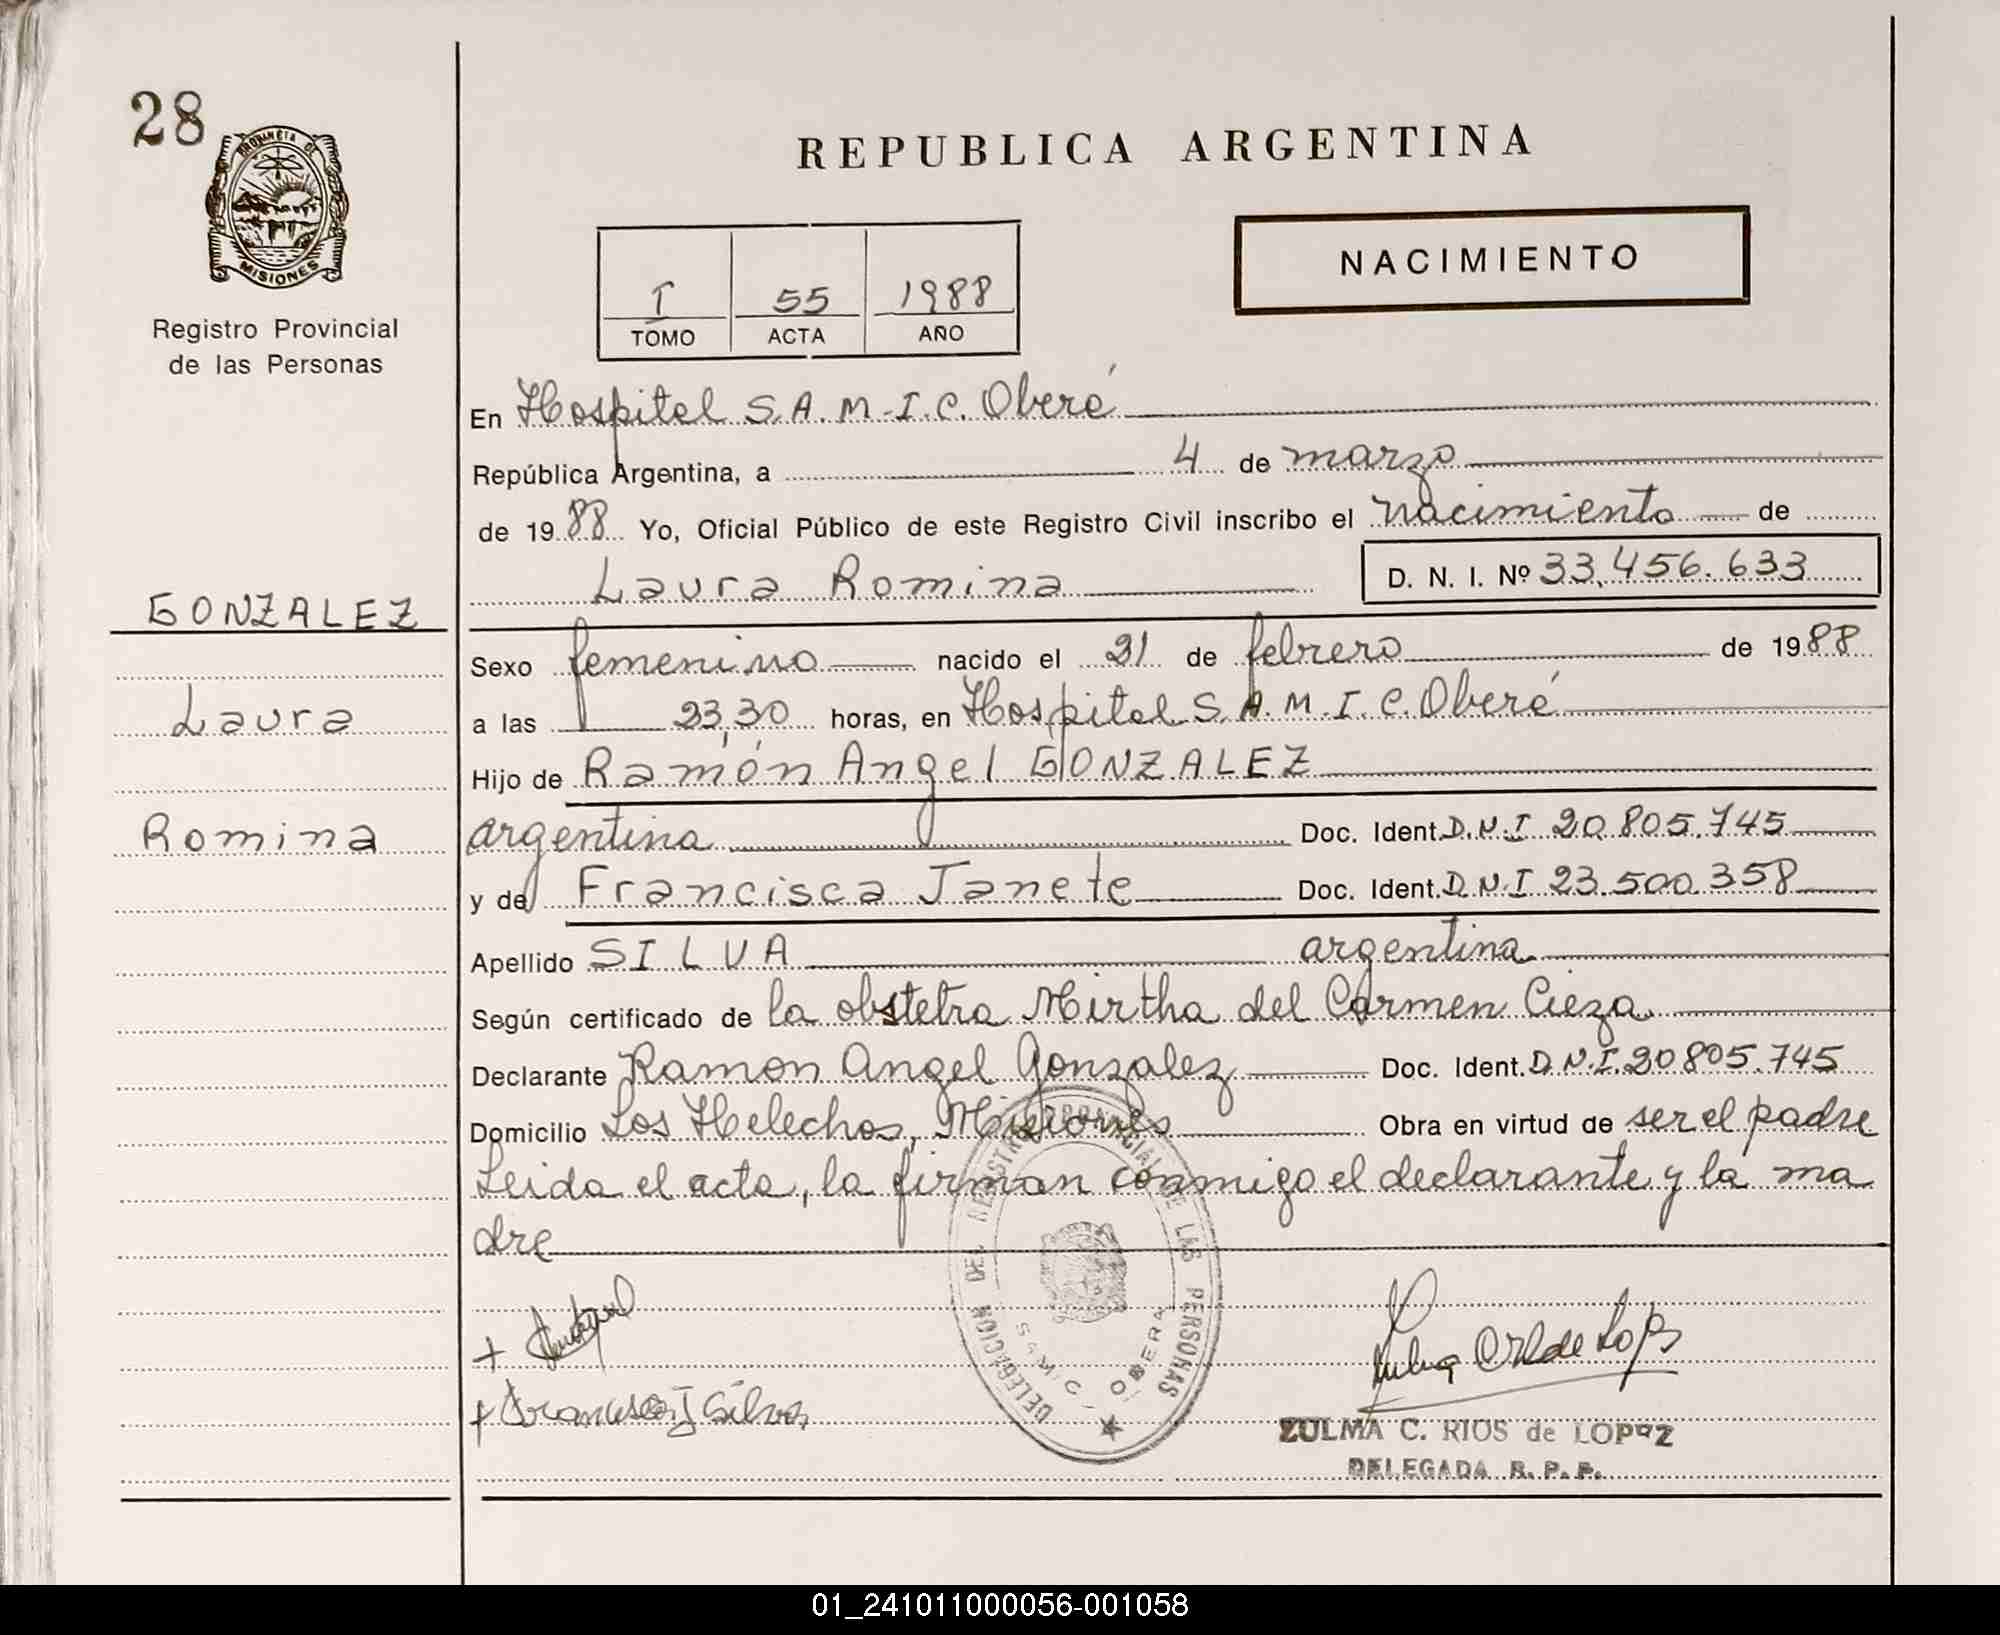 28
PROVINCIA DE
MISIONES
Registro Provincial
de las Personas
REPUBLICA ARGENTINA
NACIMIENTO
I 55 1988
TOMO ACTA AÑO
En Hospital S.A.M.I.C. Oberá
República Argentina, a 4 de marzo
de 1988 Yo, Oficial Público de este Registro Civil inscribo el nacimiento de
Laura Romina D. N. I. Nº 33.456.633
GONZALEZ
Laura
Romina
Sexo femenino nacido el 21 de febrero de 1988
a las 23,30 horas, en Hospital S.A.M.I.C. Oberá
Hijo de Ramón Angel GONZALEZ
argentina Doc. Ident. D.N.I 20.805.745
y de Francisca Janete Doc. Ident. D.N.I 23.500.358
Apellido SILVA argentina
Según certificado de la obstetra Mirtha del Carmen Cieza
Declarante Ramon Angel Gonzalez Doc. Ident. D.N.I. 20805.745
Domicilio Los Helechos, Misiones Obra en virtud de ser el padre
Leida el acta, la firman conmigo el declarante y la ma
dre
DELEGACION DEL REGISTRO PROVINCIAL DE LAS PERSONAS
SAMIC - OBERA
Francisca J Silva
ZULMA C. RIOS de LOPEZ
DELEGADA R. P. P.
01_241011000056-001058